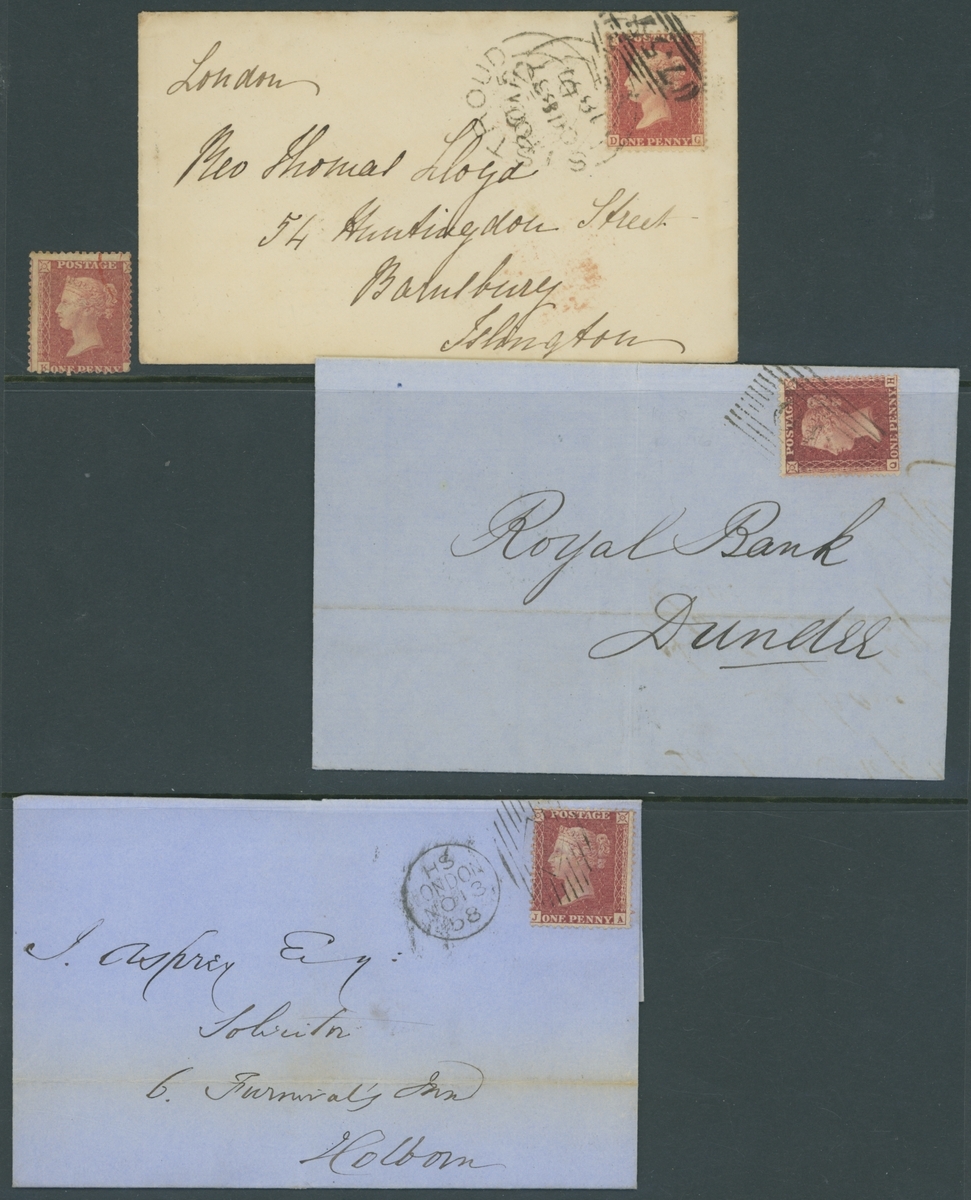 London
STROUD
POSTAGE
D ONE PENNY G
Rev Thomas Lloyd
54 Huntingdon Street
Barnsbury
Islington
POSTAGE
K ONE PENNY
POSTAGE
H
Q
ONE PENNY
Royal Bank
Dundee
POSTAGE
J ONE PENNY A
HS
LONDON
NO 13
58
J. Asprey Esq:
Solicitor
6. Furnival's Inn
Holborn